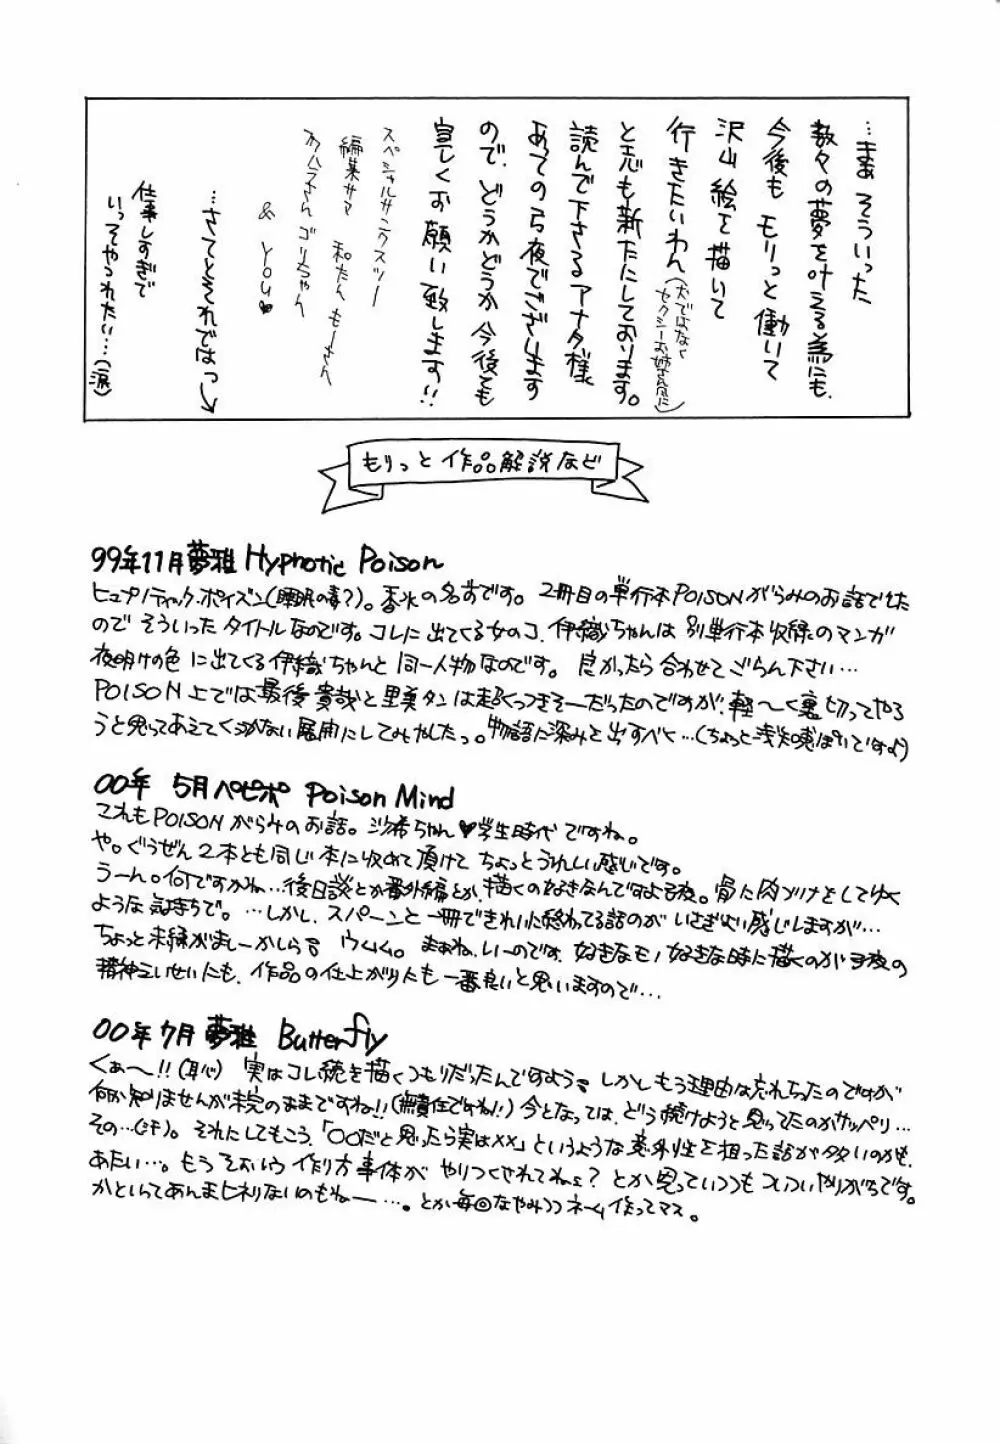 …まぁ そういった
数々の夢を叶える為にも、
今後も モリっと働いて
沢山 絵を描いて
行きたいわん(犬ではなくセクシーお姉さん風に)
と志も新たにしております。
読んで下さるアナタ様
あっての弓夜でございます
ので、どうかどうか今後とも
宜しくお願い致します!!
スペシャルサンクスツー
編集サマ 和たん もーさん
さん ゴリちゃん
& YOU♥
…さてとそれではっ→
仕事しすぎで
いってやつれたい…(涙)
もりっと作品解説など
99年11月夢雅 Hypnotic Poison
ヒュプノティック・ポイズン(睡眠の毒?)。香水の名前です。2冊目の単行本POISONがらみのお話でした
ので そういった タイトルなのです。コレに出てくる女のコ、伊織ちゃんは 別単行本収録のマンガ
夜明けの色 に出てくる伊織ちゃんと 同一人物なのです。 良かったら 合わせてごらん下さい…
POISON上では最後貴哉と里美タンは超くっつきそーだったのですが、軽〜く裏切ってやろ
うと思ってあえてくっつかない展開にしてみやしたっ。物語に深みを出すべく…(ちょっと浅知恵ぽいですよ)
00年 5月ペピポ Poison Mind
これもPOISONがらみのお話。沙希ちゃん♥学生時代ですね。
や。ぐうぜん2本とも同じ本に収めて頂けて ちょっとうれしい感じです。
うーん。何ですかね…後日談とか番外編とか、描くの好きなんですよ子夜。骨に肉づけをしてゆく
ような気持ちで。…しかし、スパーンと一冊できれいに終わってる話のが いさぎよい感じしますが…
ちょっと未練がましーかしら? ウムム。まぁね、いーのです、好きなモノ好きな時に描くのが子夜の
精神えいせいにも、作品の仕上がりにも一番良いと思いますので…
00年7月 夢雅 Butterfly
くぁ〜!!(恥) 実はコレ続を描くつもりだったんですよう。しかしもう理由は忘れちったのですが
何か知りませんが未完のままですね!!(無責任ですね!!)今となっては、どう続けようと思ってたのかサッパリ…
その…(汗)。それにしてもこう、「〇〇だと思ったら実は××」というような意外性を狙った話が多いのかも、
あたい…。もうそおいう 作り方事体が やりつくされてねぇ? とか思っていつつも ついついやりがちです。
かといってあんまヒネリないのもねー…。とか毎回なやみつつネーム作ってマス。